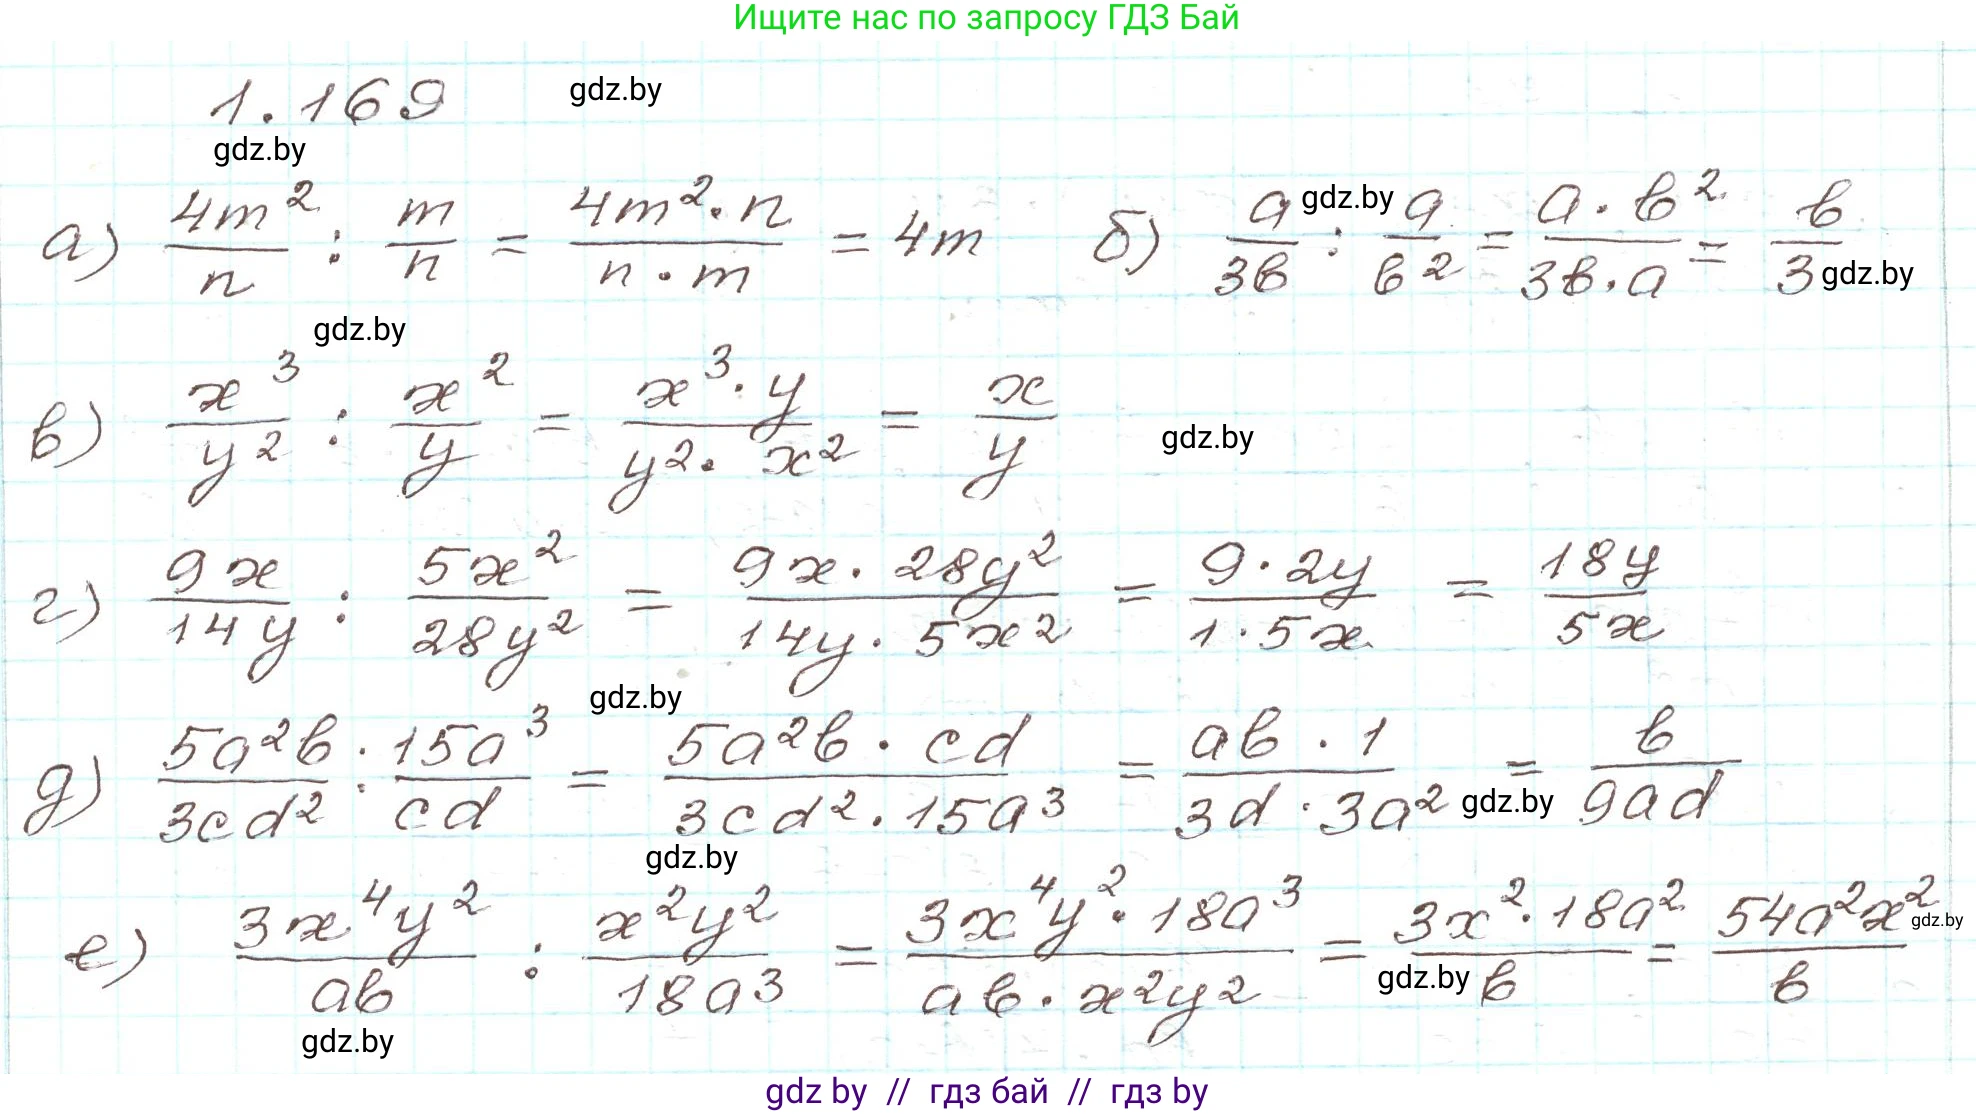 Ищите нас по запросу ГДЗ Бай
1.169 gdz.by
gdz.by
а) 4m²/n : m/n = 4m²·n/n·m = 4m б) a/3b : a/b² = a·b²/3b·a = b/3 gdz.by gdz.by
gdz.by
в) x³/y² : x²/y = x³·y/y²·x² = x/y gdz.by
г) 9x/14y : 5x²/28y² = 9x·28y²/14y·5x² = 9·2y/1·5x = 18y/5x
gdz.by
д) 5a²b/3cd² : 15a³/cd = 5a²b·cd/3cd²·15a³ = ab·1/3d·3a² = b/9ad gdz.by
gdz.by
е) 3x⁴y²/ab : x²y²/18a³ = 3x⁴y²·18a³/ab·x²y² = 3x²·18a²/b = 54a²x²/b gdz.by gdz.by
gdz.by
gdz by // гдз бай // гдз by